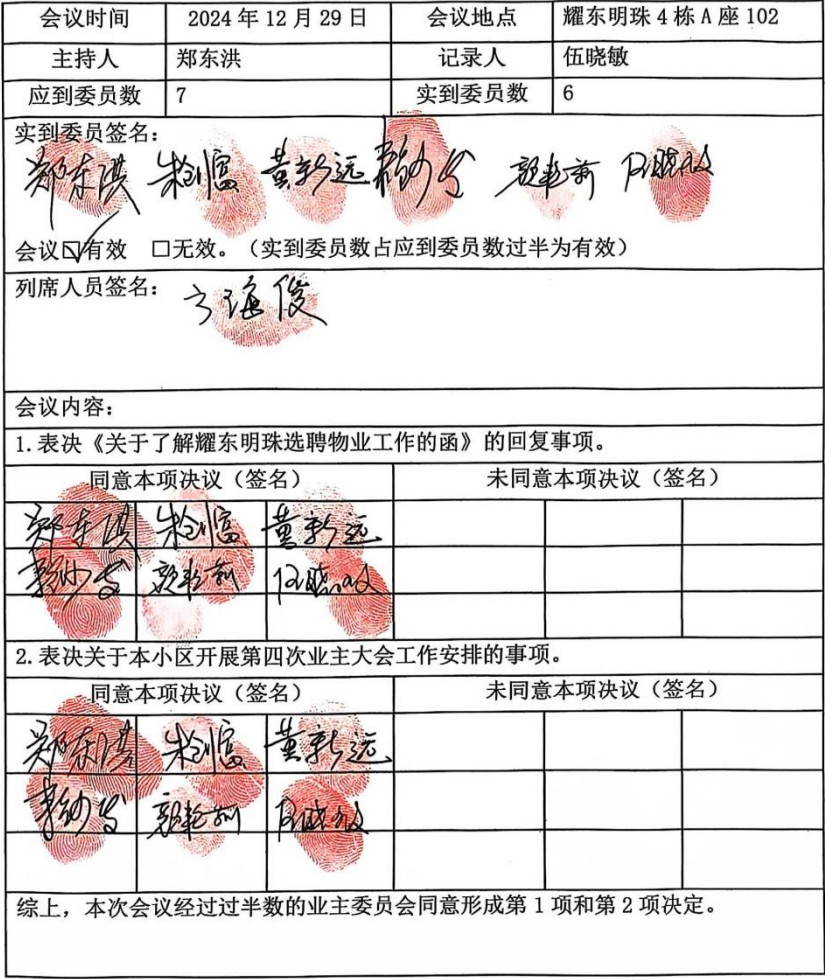 会议时间 2024年12月29日 会议地点 耀东明珠4栋A座102
主持人 郑东洪 记录人 伍晓敏
应到委员数 7 实到委员数 6
实到委员签名：
郑东洪 朱创富 黄新远 伍晓敏
会议☑有效 □无效。（实到委员数占应到委员数过半为有效）
列席人员签名：
方海俊
会议内容：
1.表决《关于了解耀东明珠选聘物业工作的函》的回复事项。
同意本项决议（签名） 未同意本项决议（签名）
郑东洪 朱创富 黄新远
伍晓敏
2.表决关于本小区开展第四次业主大会工作安排的事项。
同意本项决议（签名） 未同意本项决议（签名）
郑东洪 朱创富 黄新远
伍晓敏
综上，本次会议经过过半数的业主委员会同意形成第1项和第2项决定。